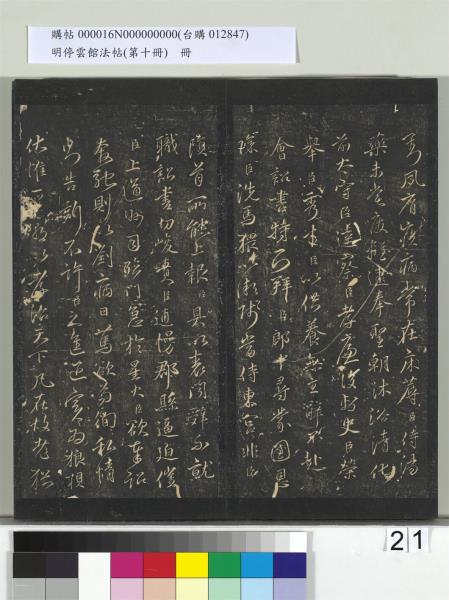 購帖 000016N000000000(台購 012847)
明停雲館法帖(第十冊) 冊
夙嬰疾病常在床蓐臣侍湯
藥未嘗廢離逮奉聖朝沐浴清化
前太守臣逵察臣孝廉後刺史臣榮
舉臣秀才臣以供養無主辭不赴
會詔書特下拜臣郎中尋蒙國恩
除臣洗馬猥以微賤當侍東宮非臣
隕首所能上報臣具以表聞辭不就
職詔書切峻責臣逋慢郡縣逼迫催
臣上道州司臨門急於星火臣欲奉詔
奔馳則以劉病日篤欲苟徇私情
則告訴不許臣之進退實為狼狽
伏惟以孝治天下凡在故老猶
21